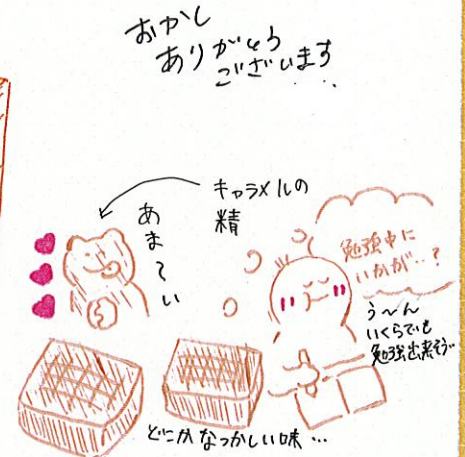 おかし
ありがとう
ございます
キャラメルの
精
あま〜い
勉強中に
いかが…?
う〜ん
いくらでも
勉強出来そう…
どこかなつかしい味…